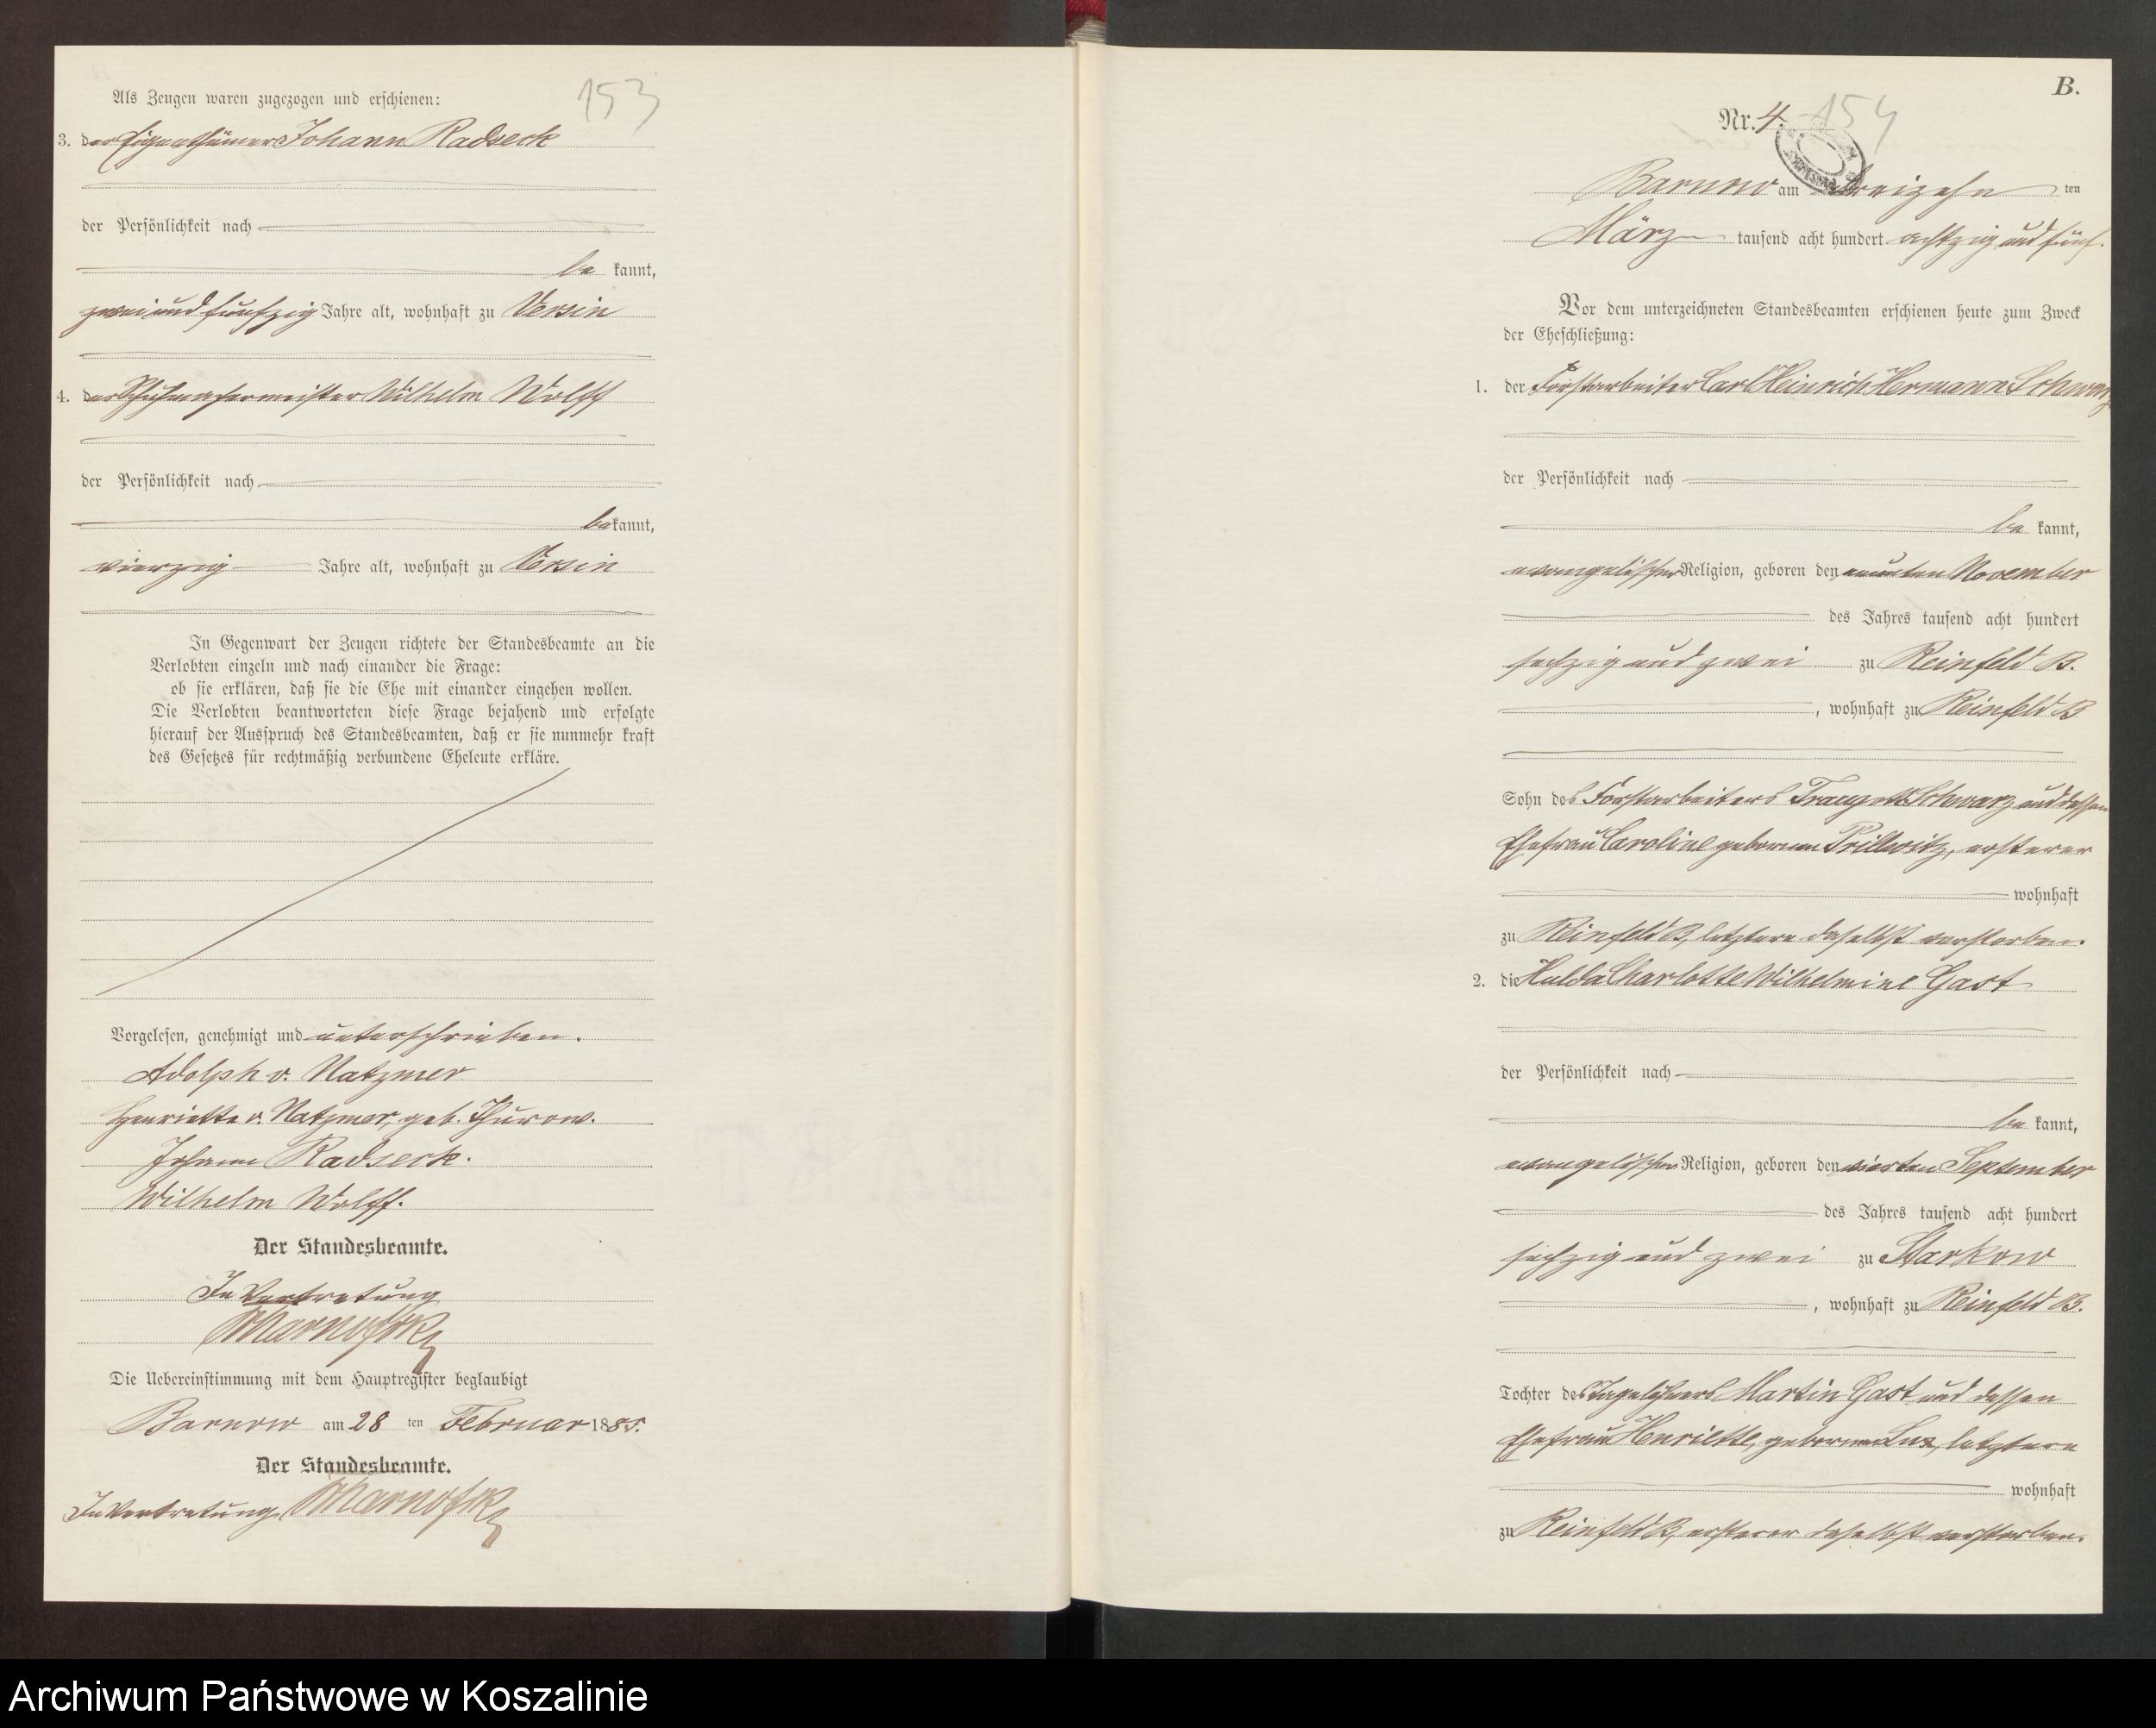 153
Als Zeugen waren zugezogen und erschienen:
3. der Eigenthümer Johann Radseck
der Persönlichkeit nach
be kannt,
zwei und funfzig Jahre alt, wohnhaft zu Versin
4. der Schuhmachermeister Wilhelm Wolff
der Persönlichkeit nach
bekannt,
vierzig Jahre alt, wohnhaft zu Versin
In Gegenwart der Zeugen richtete der Standesbeamte an die
Verlobten einzeln und nach einander die Frage:
ob sie erklären, daß sie die Ehe mit einander eingehen wollen.
Die Verlobten beantworteten diese Frage bejahend und erfolgte
hierauf der Ausspruch des Standesbeamten, daß er sie nunmehr kraft
des Gesetzes für rechtmäßig verbundene Eheleute erkläre.
Vorgelesen, genehmigt und unterschrieben.
Adolph v. Natzmer
Henriette v. Natzmer, geb. Thurow.
Johann Radseck.
Wilhelm Wolff.
Der Standesbeamte.
In Vertretung
Die Uebereinstimmung mit dem Hauptregister beglaubigt
Barnow am 28 ten Februar 1885.
Der Standesbeamte.
In Vertretung
B.
Nr. 4. 154
Barnow am dreizehn ten
März tausend acht hundert achtzig und fünf.
Vor dem unterzeichneten Standesbeamten erschienen heute zum Zweck
der Eheschließung:
1. der Forstarbeiter Carl Heinrich Hermann Schwarz
der Persönlichkeit nach
be kannt,
evangelischer Religion, geboren den neunten November
des Jahres tausend acht hundert
sechzig und zwei zu Reinfeld B.
, wohnhaft zu Reinfeld B
Sohn des Forstarbeiters Traugott Schwarz und dessen
Ehefrau Caroline geborenen Prillwitz, ersterer
wohnhaft
zu Reinfeld B, letztere daselbst verstorben.
2. die Hulda Charlotte Wilhelmine Gast
der Persönlichkeit nach
be kannt,
evangelischer Religion, geboren den vierten September
des Jahres tausend acht hundert
sechzig und zwei zu Starkow
, wohnhaft zu Reinfeld B.
Tochter des Tagelöhners Martin Gast und dessen
Ehefrau Henriette, geborenen letztere
wohnhaft
zu Reinfeld B, ersterer daselbst verstorben.
Archiwum Państwowe w Koszalinie